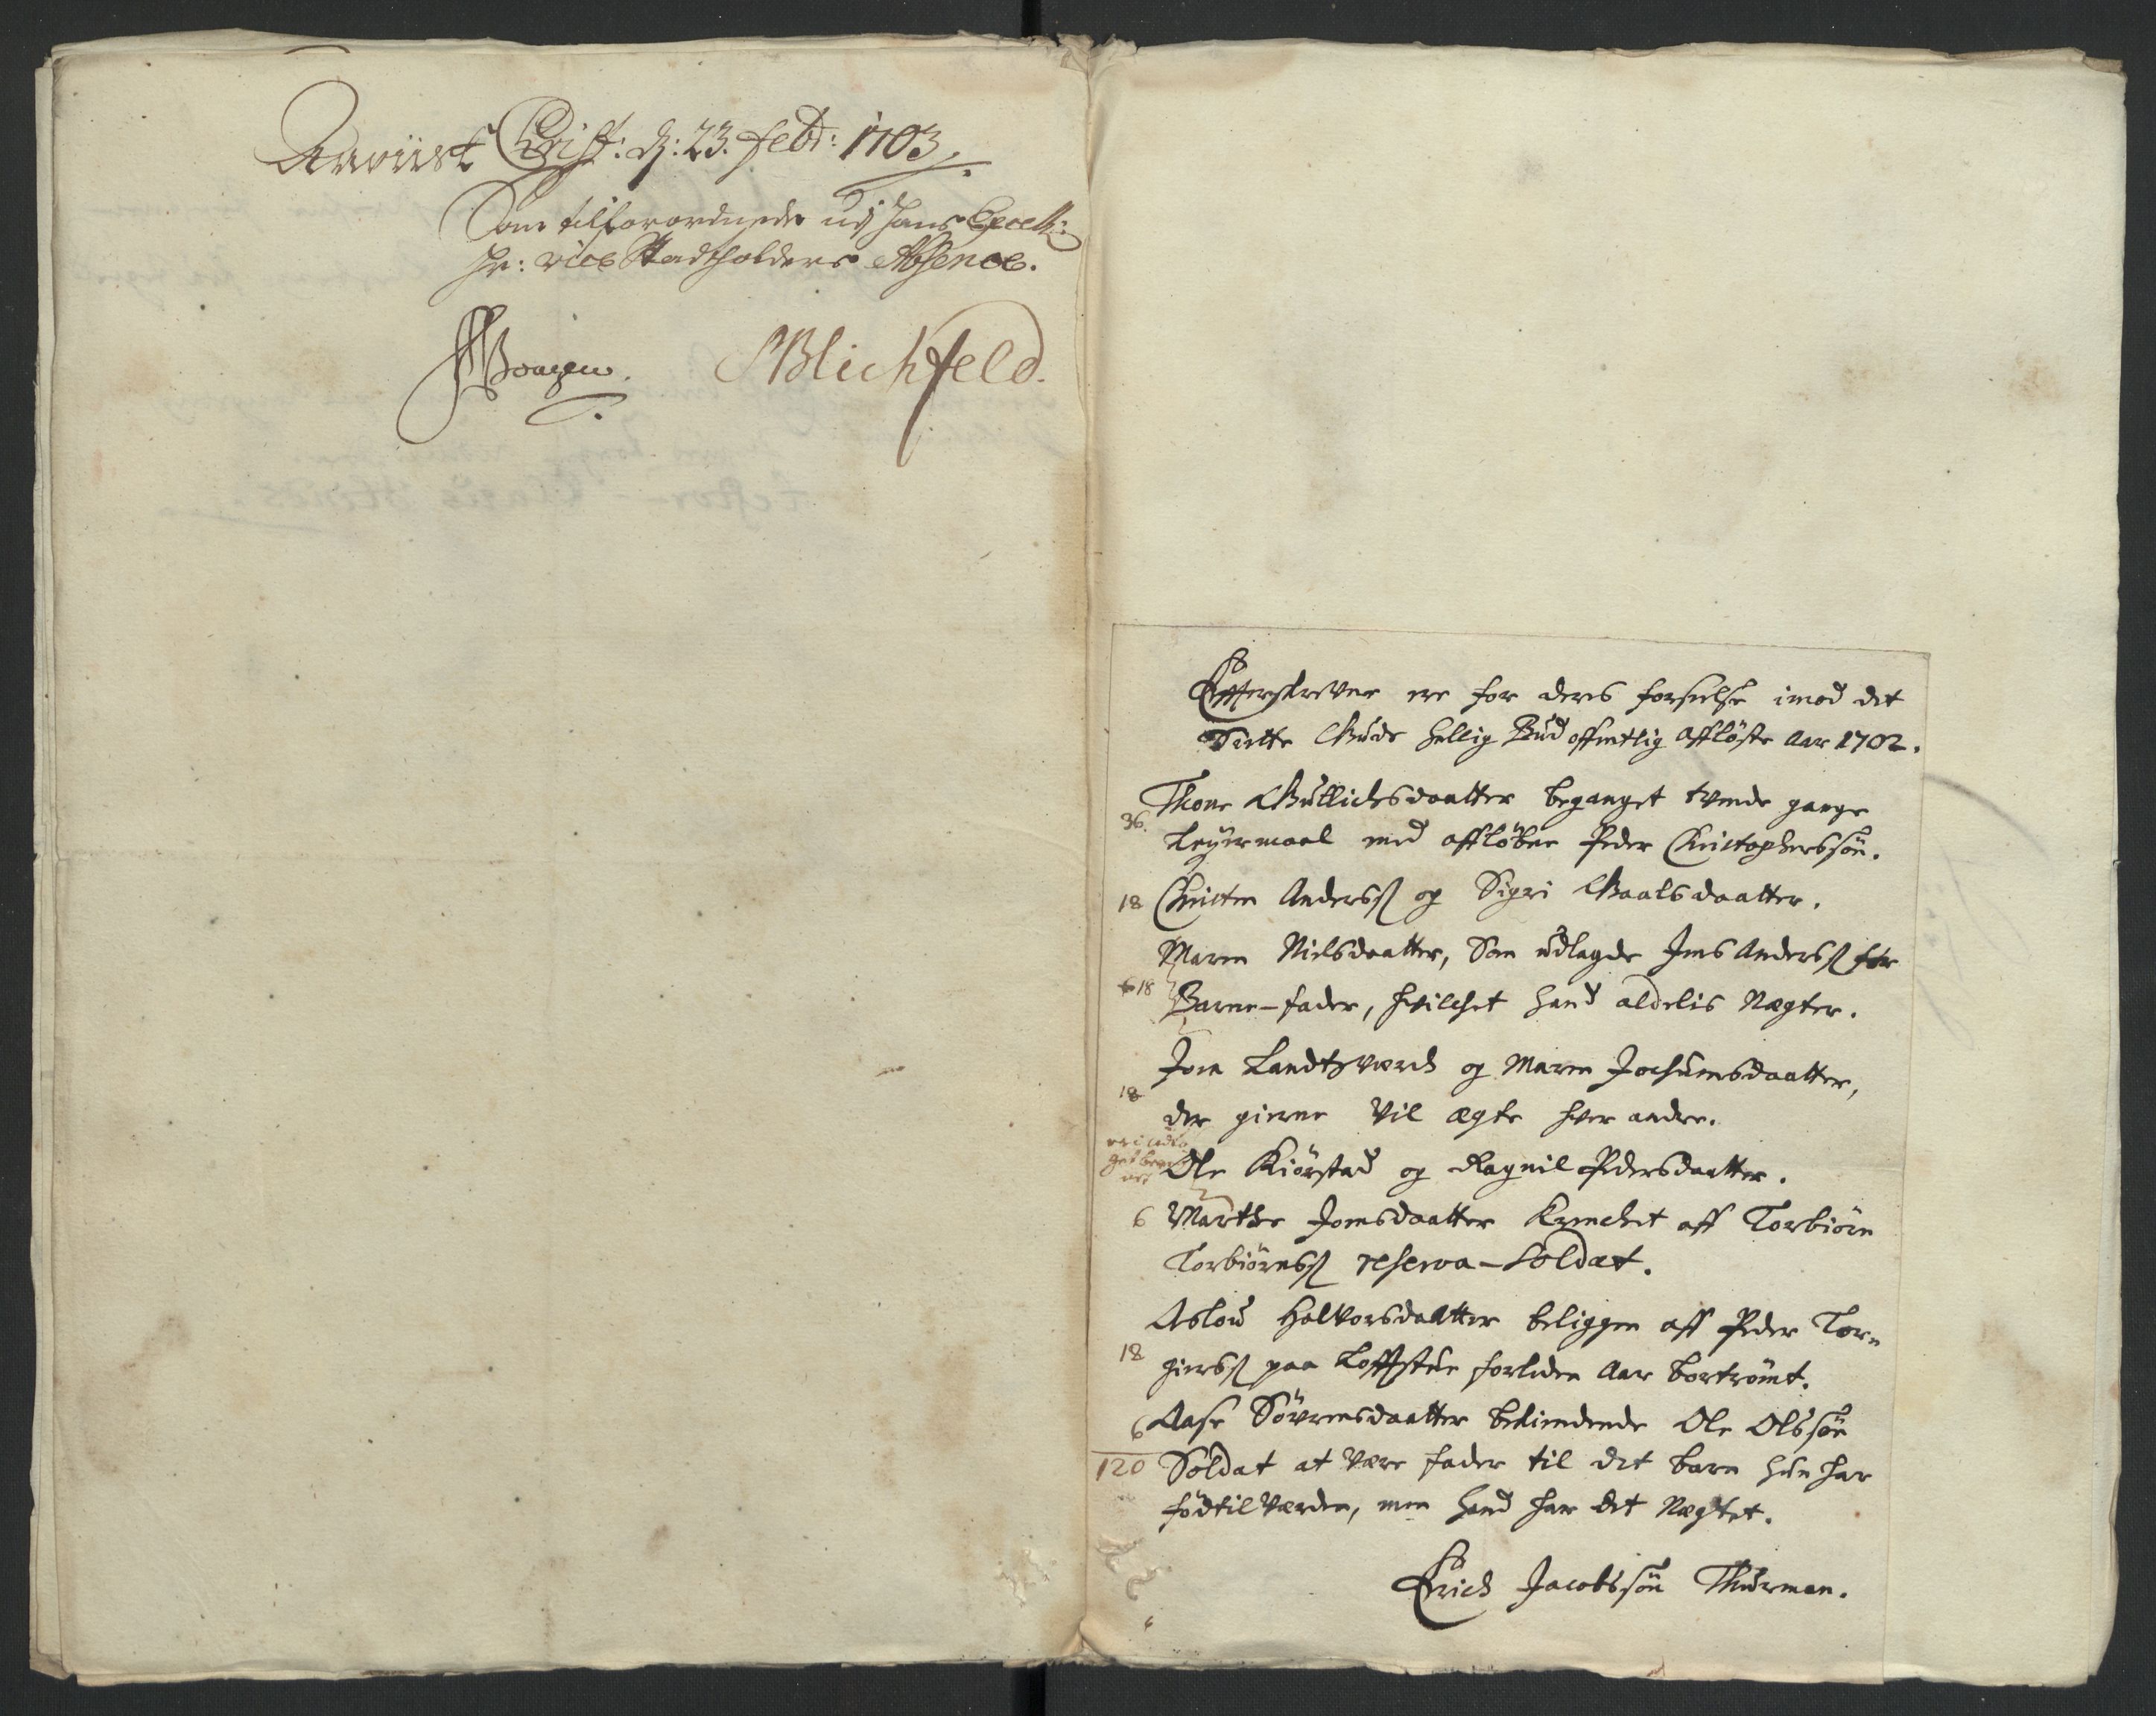 Anviist Christ: d: 23. Febr: 1703
Som tilforordnede udj hans Excell:
Hr: vice Stadtholders Absence.
Blichfeld.
Effterskrevne ere for deres forseelse imod det
Siette Guds hellig Bud offentlig affløste Aar 1702.
Thone Gullichsdaatter beganget tvende gange
36.
Leyermaal med affløben Peder Christophersøn.
18 Christen Anderss og Sigri Gaalsdaatter.
Maren Nielsdaatter, Som udlagde Jens Anderss for
18
Barne-fader, hvilchet hand aldelis Nægter.
Jon Landtzværch og Maren Jochumsdaatter,
18
der gierne vil ægte hver andre.
Ole Kiørstad og Ragnil Pedersdaatter.
6 Marthe Jonsdaatter Krenchet aff Torbiørn
Torbiørnss reserva-Soldat.
Aslou Halvorsdaatter beliggen aff Peder Tor-
18
gierss paa Lofftstue forleden Aar bortrømt.
6 Aase Søvrensdaatter bekiendende Ole Olssøn
120 Soldat at være fader til det barn hun har
fødtil Værden, men hand har det Nægtet.
Erich Jacobssøn Thurman.